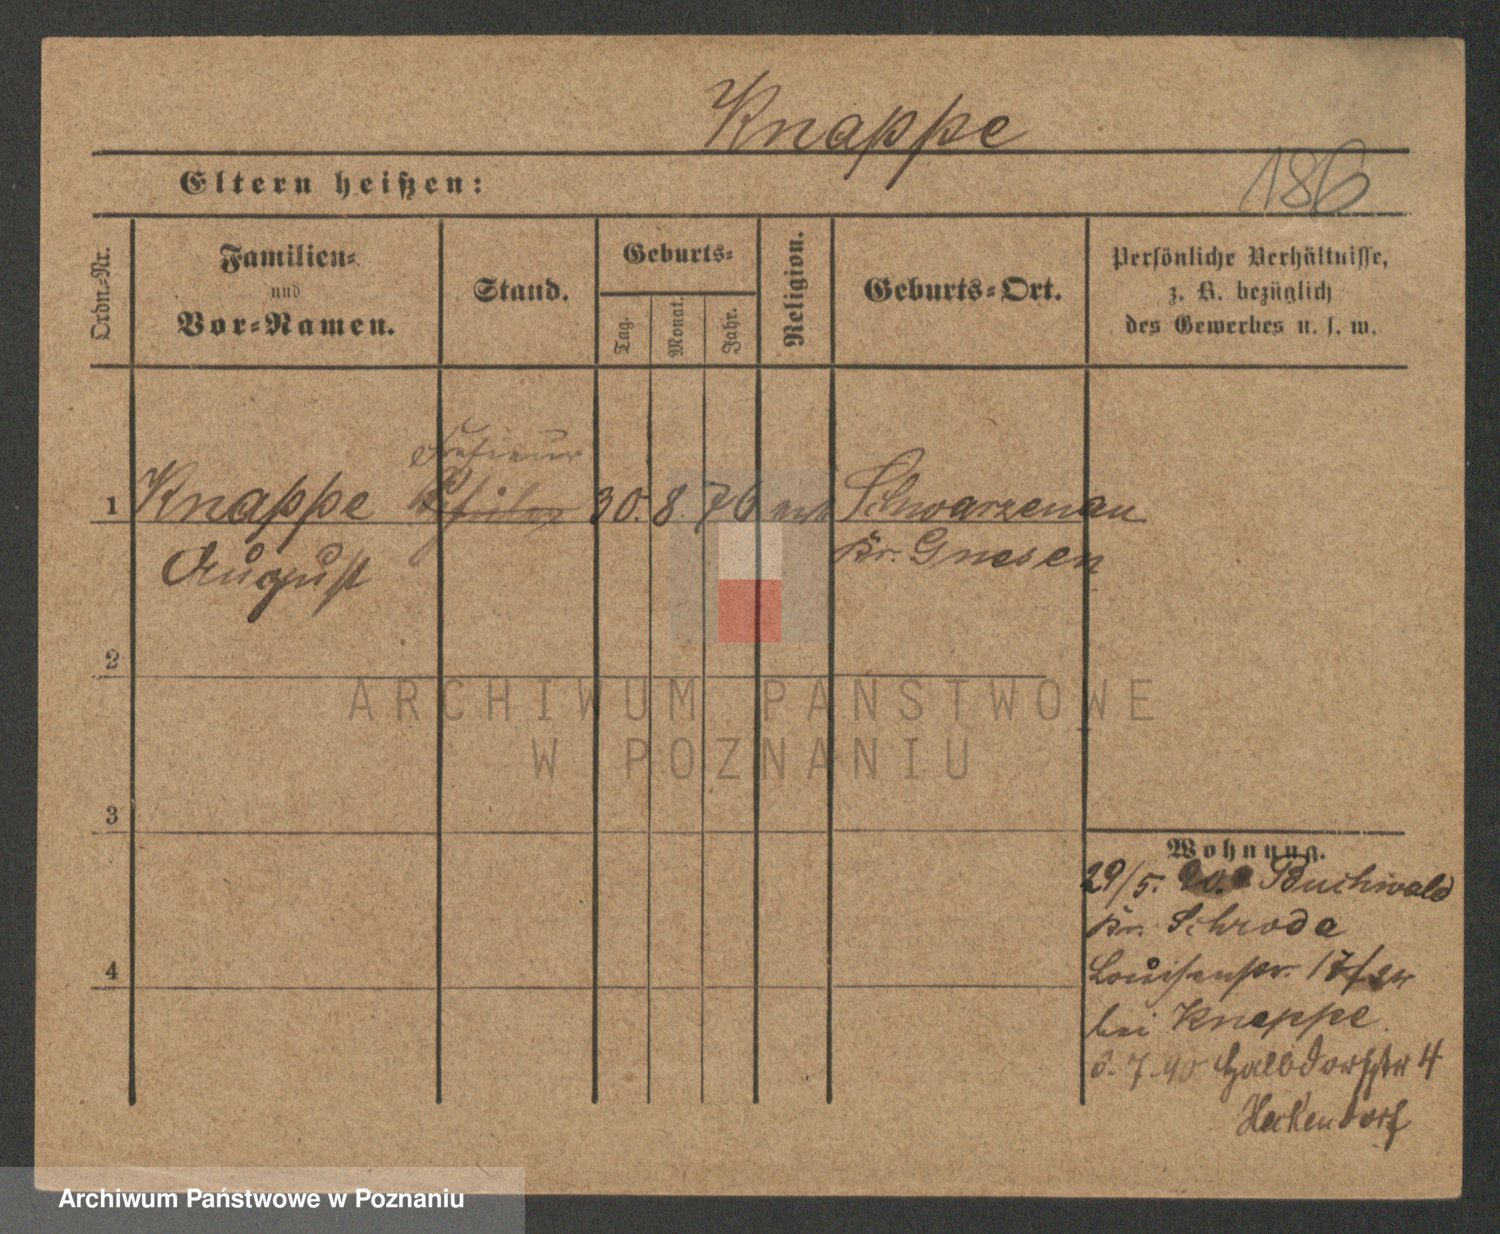 Knappe
Eltern heißen:
186
Ordn.-Nr.
Familien-
und
Vor-Namen.
Stand.
Geburts-
Tag.
Monat.
Jahr.
Religion.
Geburts-Ort.
Persönliche Verhältnisse,
z. B. bezüglich
des Gewerbes u. s. w.
1
Knappe
August
30.
8.
76
Schwarzenau
Kr. Gnesen
2
3
4
ARCHIWUM PAŃSTWOWE
W POZNANIU
Wohnung.
29/5. 90. Buchwald
Kr. Schroda
Louisenstr. 17
bei Knappe
6.7.90 Halbdorfstr 4
Heckendorf
Archiwum Państwowe w Poznaniu